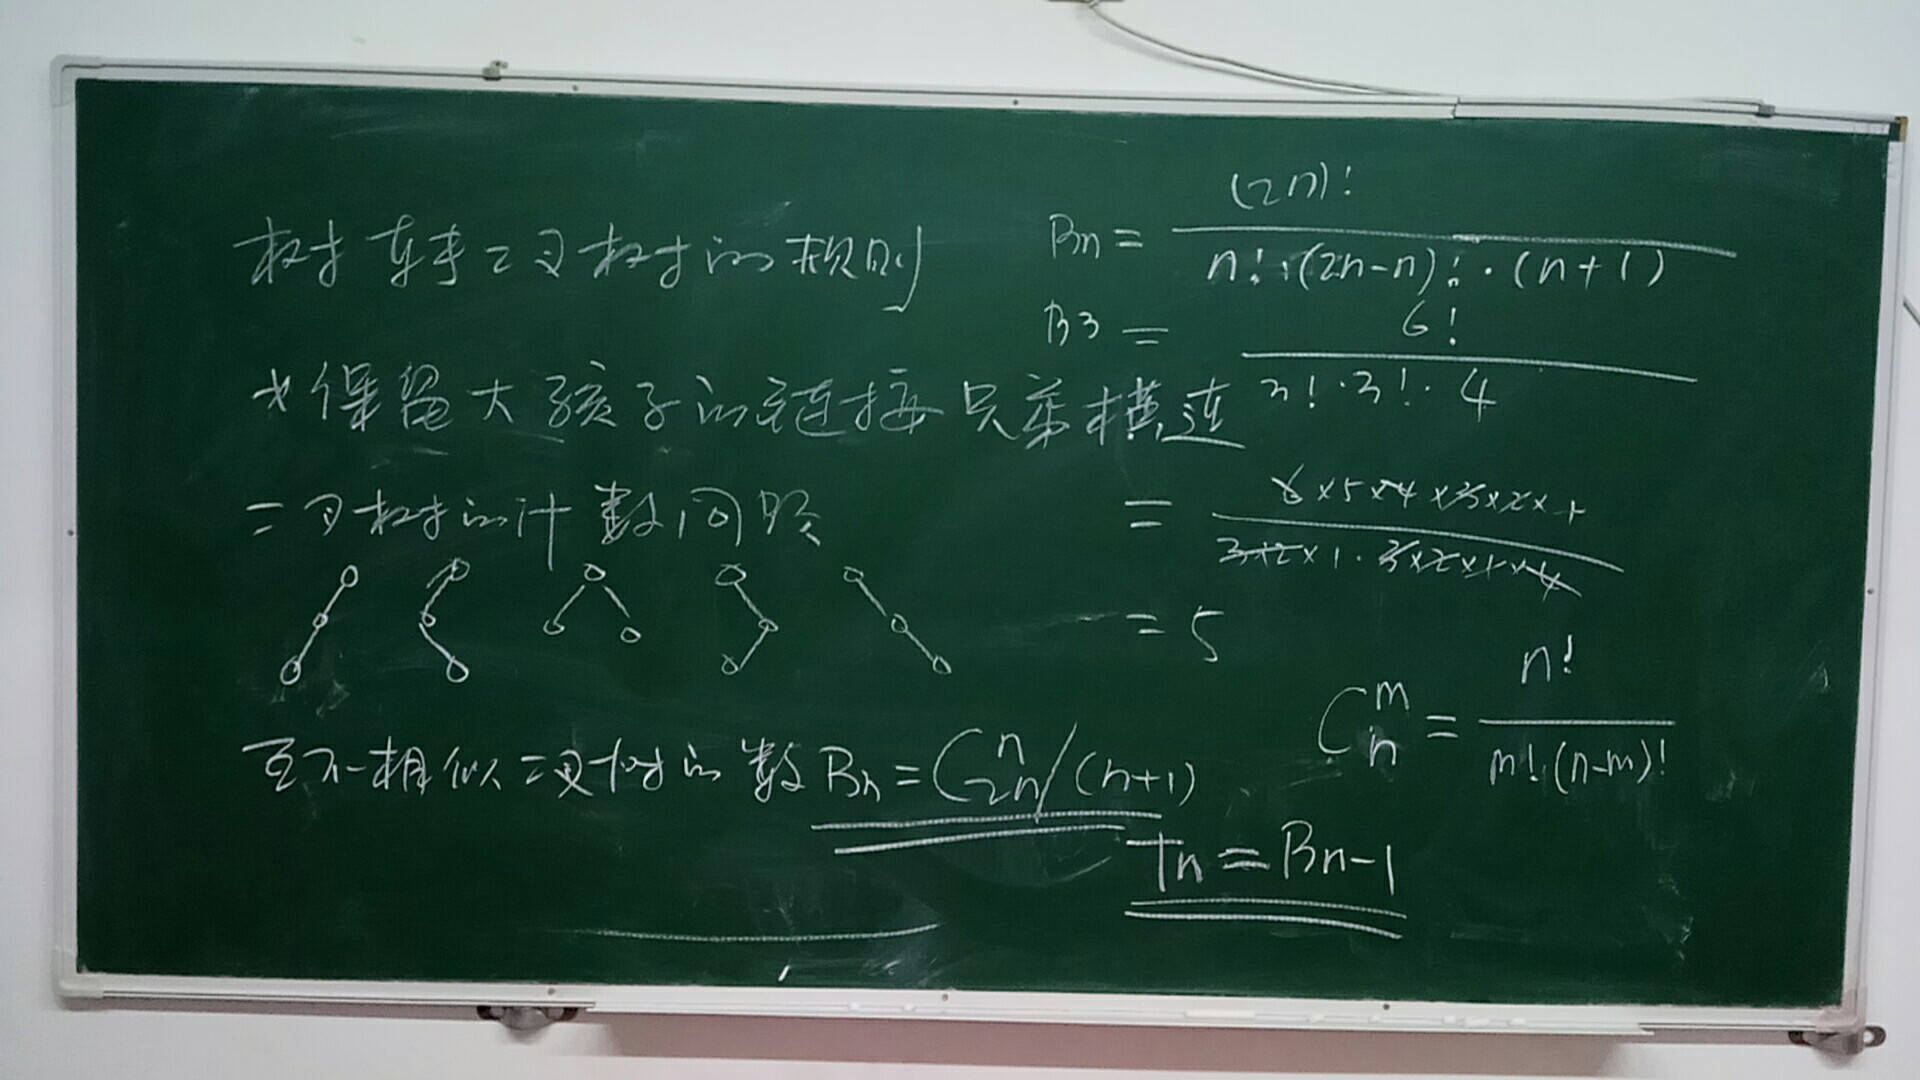 树转二叉树的规则
*保留大孩子的链接 兄弟横连
二叉树的计数问题
互不相似二叉树的数 Bn = C_{2n}^{n}/(n+1)
Tn = Bn-1
Bn = (2n)! / n!·(2n-n)!·(n+1)
B3 = 6! / 3!·3!·4
= 6×5×4×3×2×1 / 3×2×1·3×2×1×4
= 5
C_{n}^{m} = n! / m!·(n-m)!